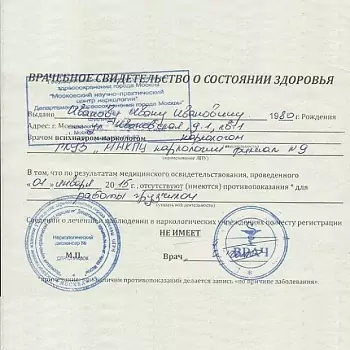 здравоохранения города Москвы
"Московский научно-практический
центр наркологии"
Департамента здравоохранения города Москвы
ВРАЧЕБНОЕ СВИДЕТЕЛЬСТВО О СОСТОЯНИИ ЗДОРОВЬЯ
Выдано Иванову Ивану Ивановичу 1980 г. Рождения
Адрес: г. Москва ул. Ивановская д.1, кв.1
Врачом психиатром-наркологом наркологом
ГКУЗ "МНПЦ наркологии" филиал №9
(наименование ЛПУ)
В том, что по результатам медицинского освидетельствования, проведенного
"01" января 2015 г., отсутствуют (имеются) противопоказания * для
работы грузчиком
(указать вид деятельности)
Сведений о лечении и наблюдении в наркологических учреждениях по месту регистрации
НЕ ИМЕЕТ
Наркологический
диспансер №
М.П.
МОСКВА
Врач
ВРАЧ
* при наличии противопоказаний делается запись «по причине заболевания».